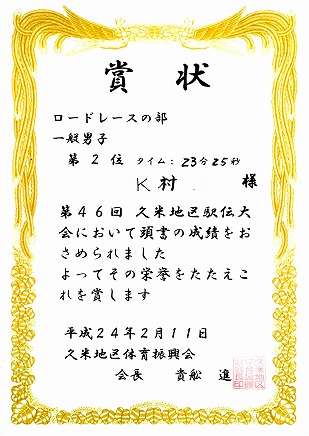 賞状
ロードレースの部
一般男子
第2位 タイム：23分25秒
K村 様
第46回 久米地区駅伝大
会において頭書の成績をお
さめられました
よってその栄誉をたたえこ
れを賞します
平成24年2月11日
久米地区体育振興会
会長 貴舩 進